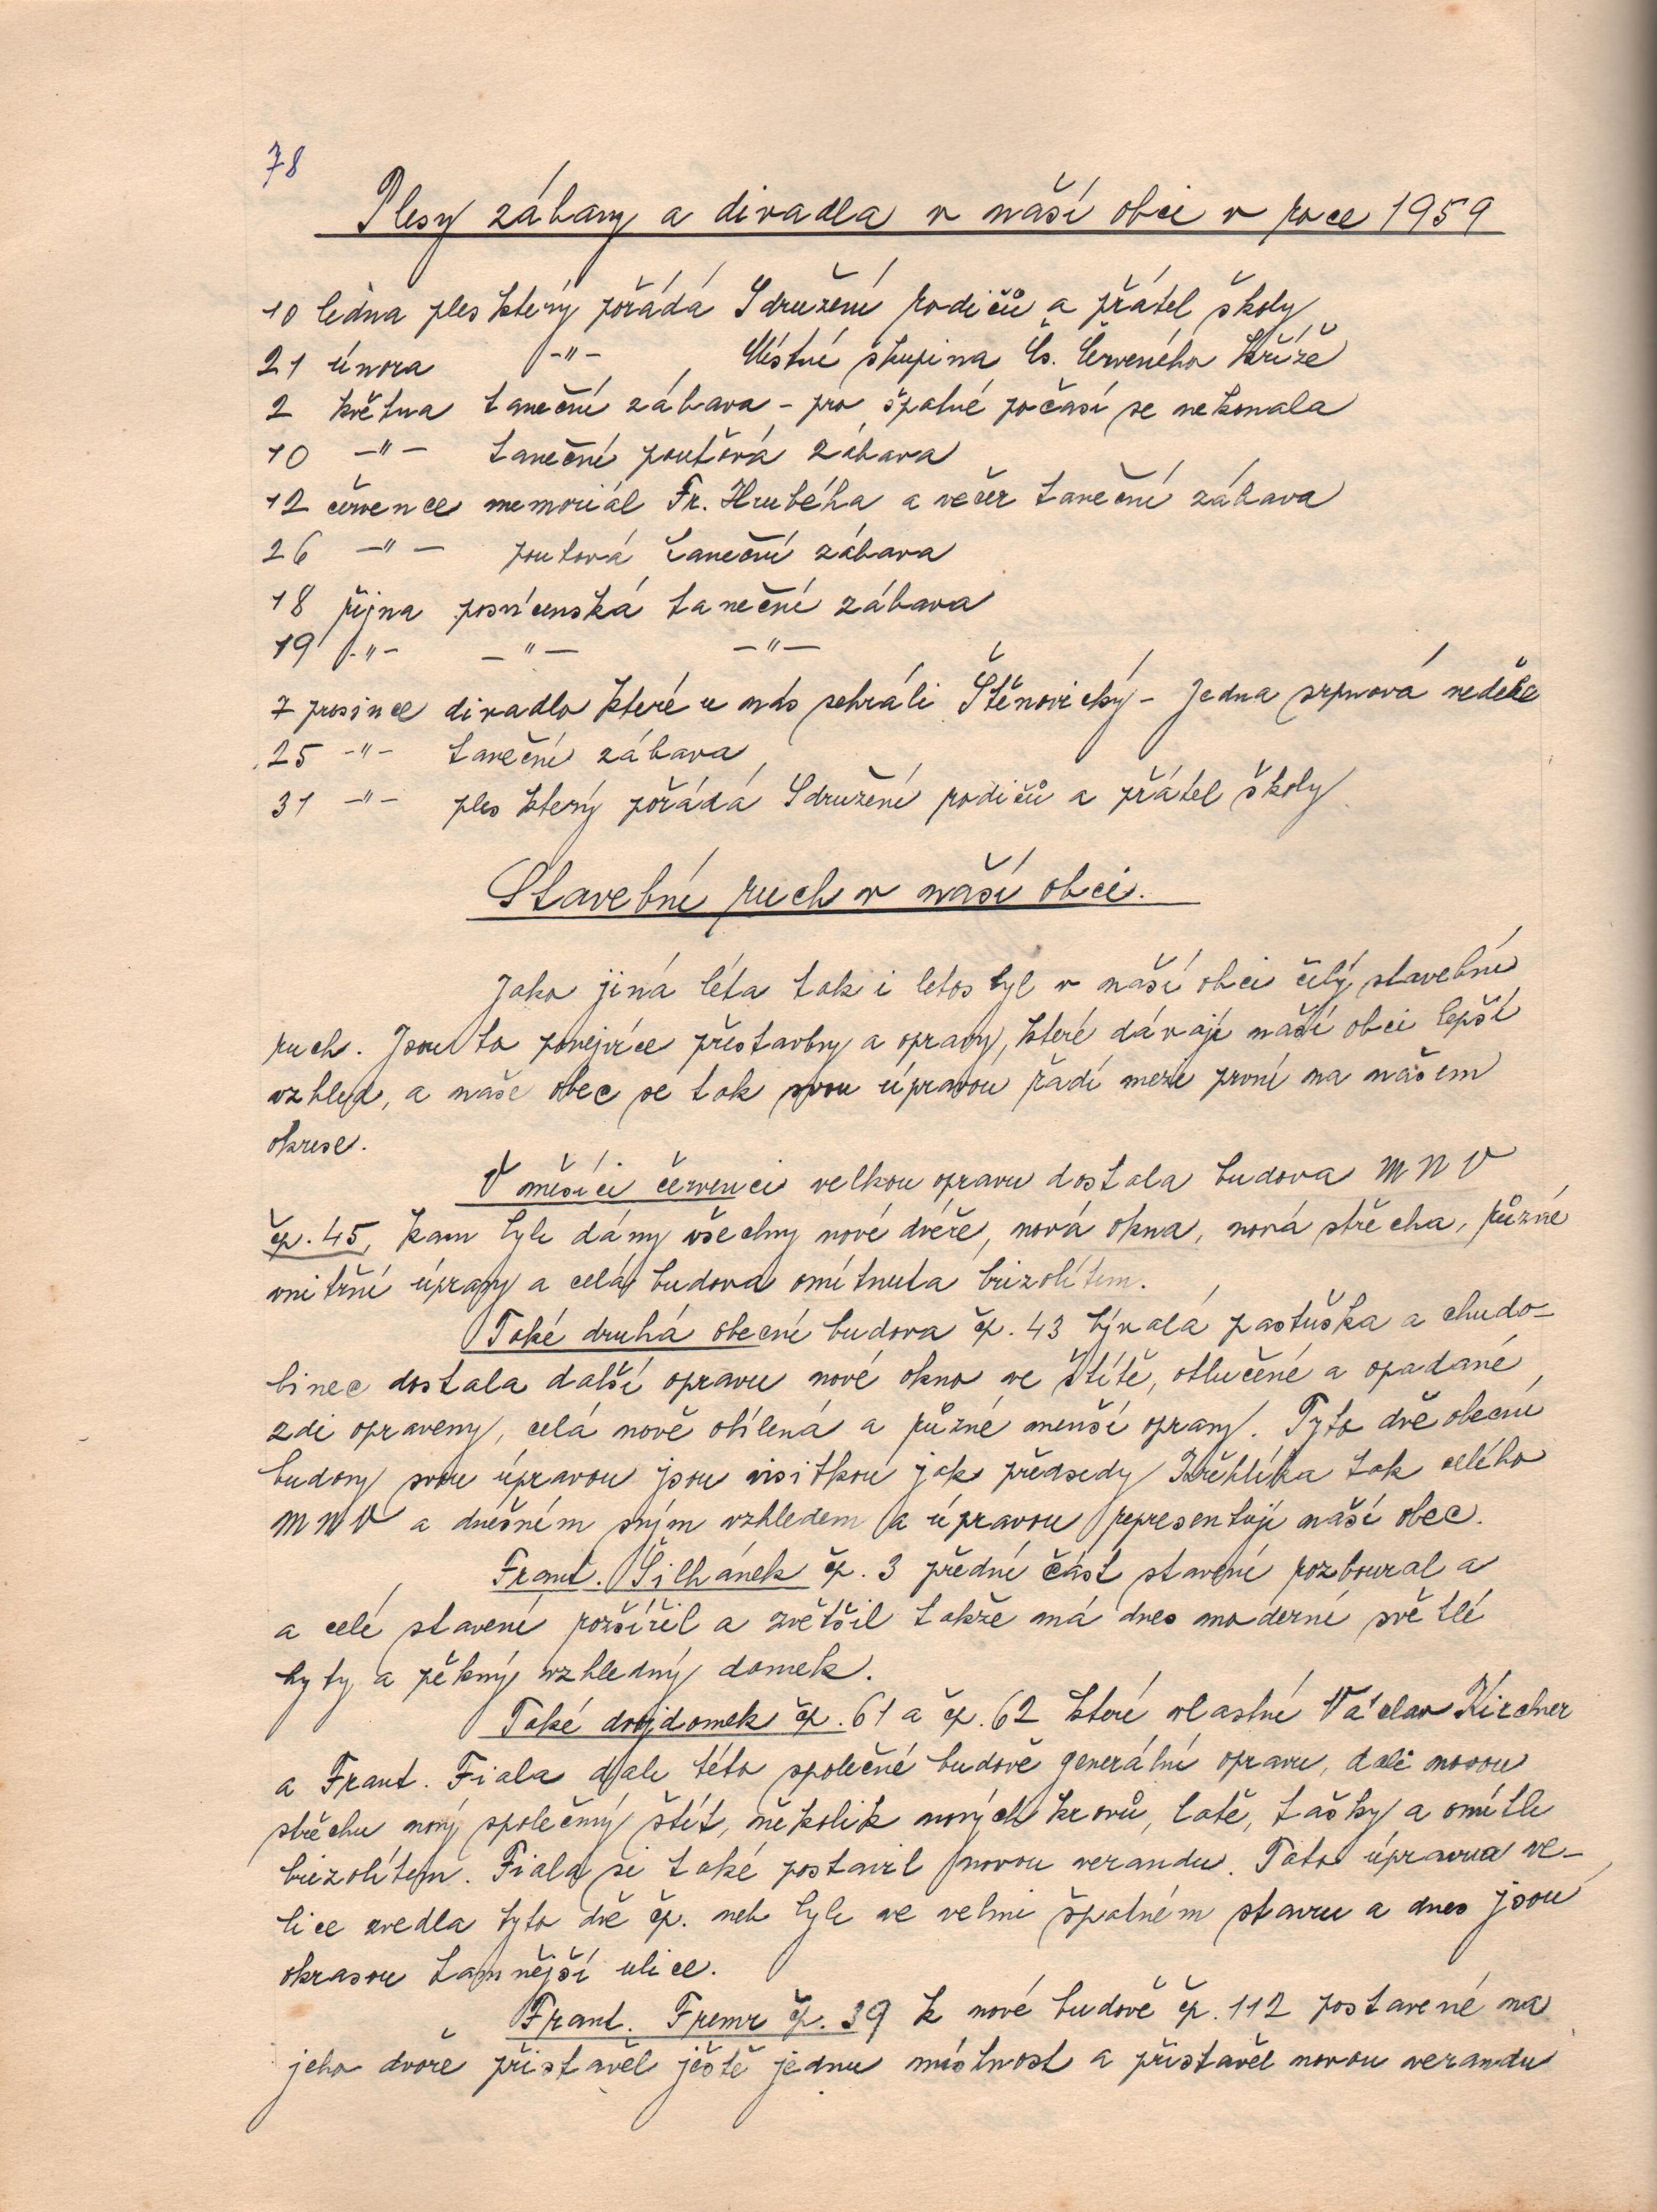 78
Plesy zábavy a divadla v naší obci v roce 1959
10 ledna ples který pořádá Sdružení rodičů a přátel školy
21 února -"- Místní skupina Čs. Červeného kříže
2 května taneční zábava - pro špatné počasí se nekonala
10 -"- taneční pouťová zábava
12 července memoriál Fr. Hrubého a večer taneční zábava
26 -"- pouťová taneční zábava
18 října posvícenská taneční zábava
19 -"- -"- -"-
7 prosince divadlo které u nás sehráli Štěnovický - Jedna srpnová neděle
25 -"- taneční zábava
31 -"- ples který pořádá Sdružení rodičů a přátel školy
Stavební ruch v naší obci.
Jako jiná léta tak i letos byl v naší obci čilý stavební
ruch. Jsou to ponejvíce přestavby a opravy, které dávají naší obci lepší
vzhled, a naše obec se tak svou úpravou řadí mezi první na našem
okrese.
V měsíci červenci velkou opravu dostala budova MNV
čp. 45, kam byly dány všechny nové dvéře, nová okna, nová střecha, různé
vnitřní úpravy a celá budova omítnuta brizolitem.
Také druhá obecní budova čp. 43 bývalá pastuška a chudo-
binec dostala další opravu nové okno ve štítě, otlučené a opadané
zdi opraveny, celá nově obílená a různé menší opravy. Tyto dvě obecní
budovy svou úpravou jsou visitkou jak předsedy Křehlíka tak celého
MNV a dnešném svým vzhledem a úpravou representují naší obec.
Frant. Šilhánek čp. 3 přední část stavení rozboural a
a celé stavení rozšířil a zvětšil takže má dnes moderní světlé
byty a pěkný vzhledný domek.
Také dvojdomek čp. 61 a čp. 62 které vlastní Václav Kirchner
a Frant. Fiala daly této společné budově generální opravu, dali novou
střechu nový společný štít, několik nových krovů, latě, tašky a omítli
brizolitem. Fiala si také postavil novou verandu. Tato úprava ve-
lice zvedla tyto dvě čp. neb byly ve velmi špatném stavu a dnes jsou
okrasou tamnější ulice.
Frant. Fremr čp. 39 k nové budově čp. 112 postavené na
jeho dvoře přistavěl ještě jednu místnost a přistavěl novou verandu